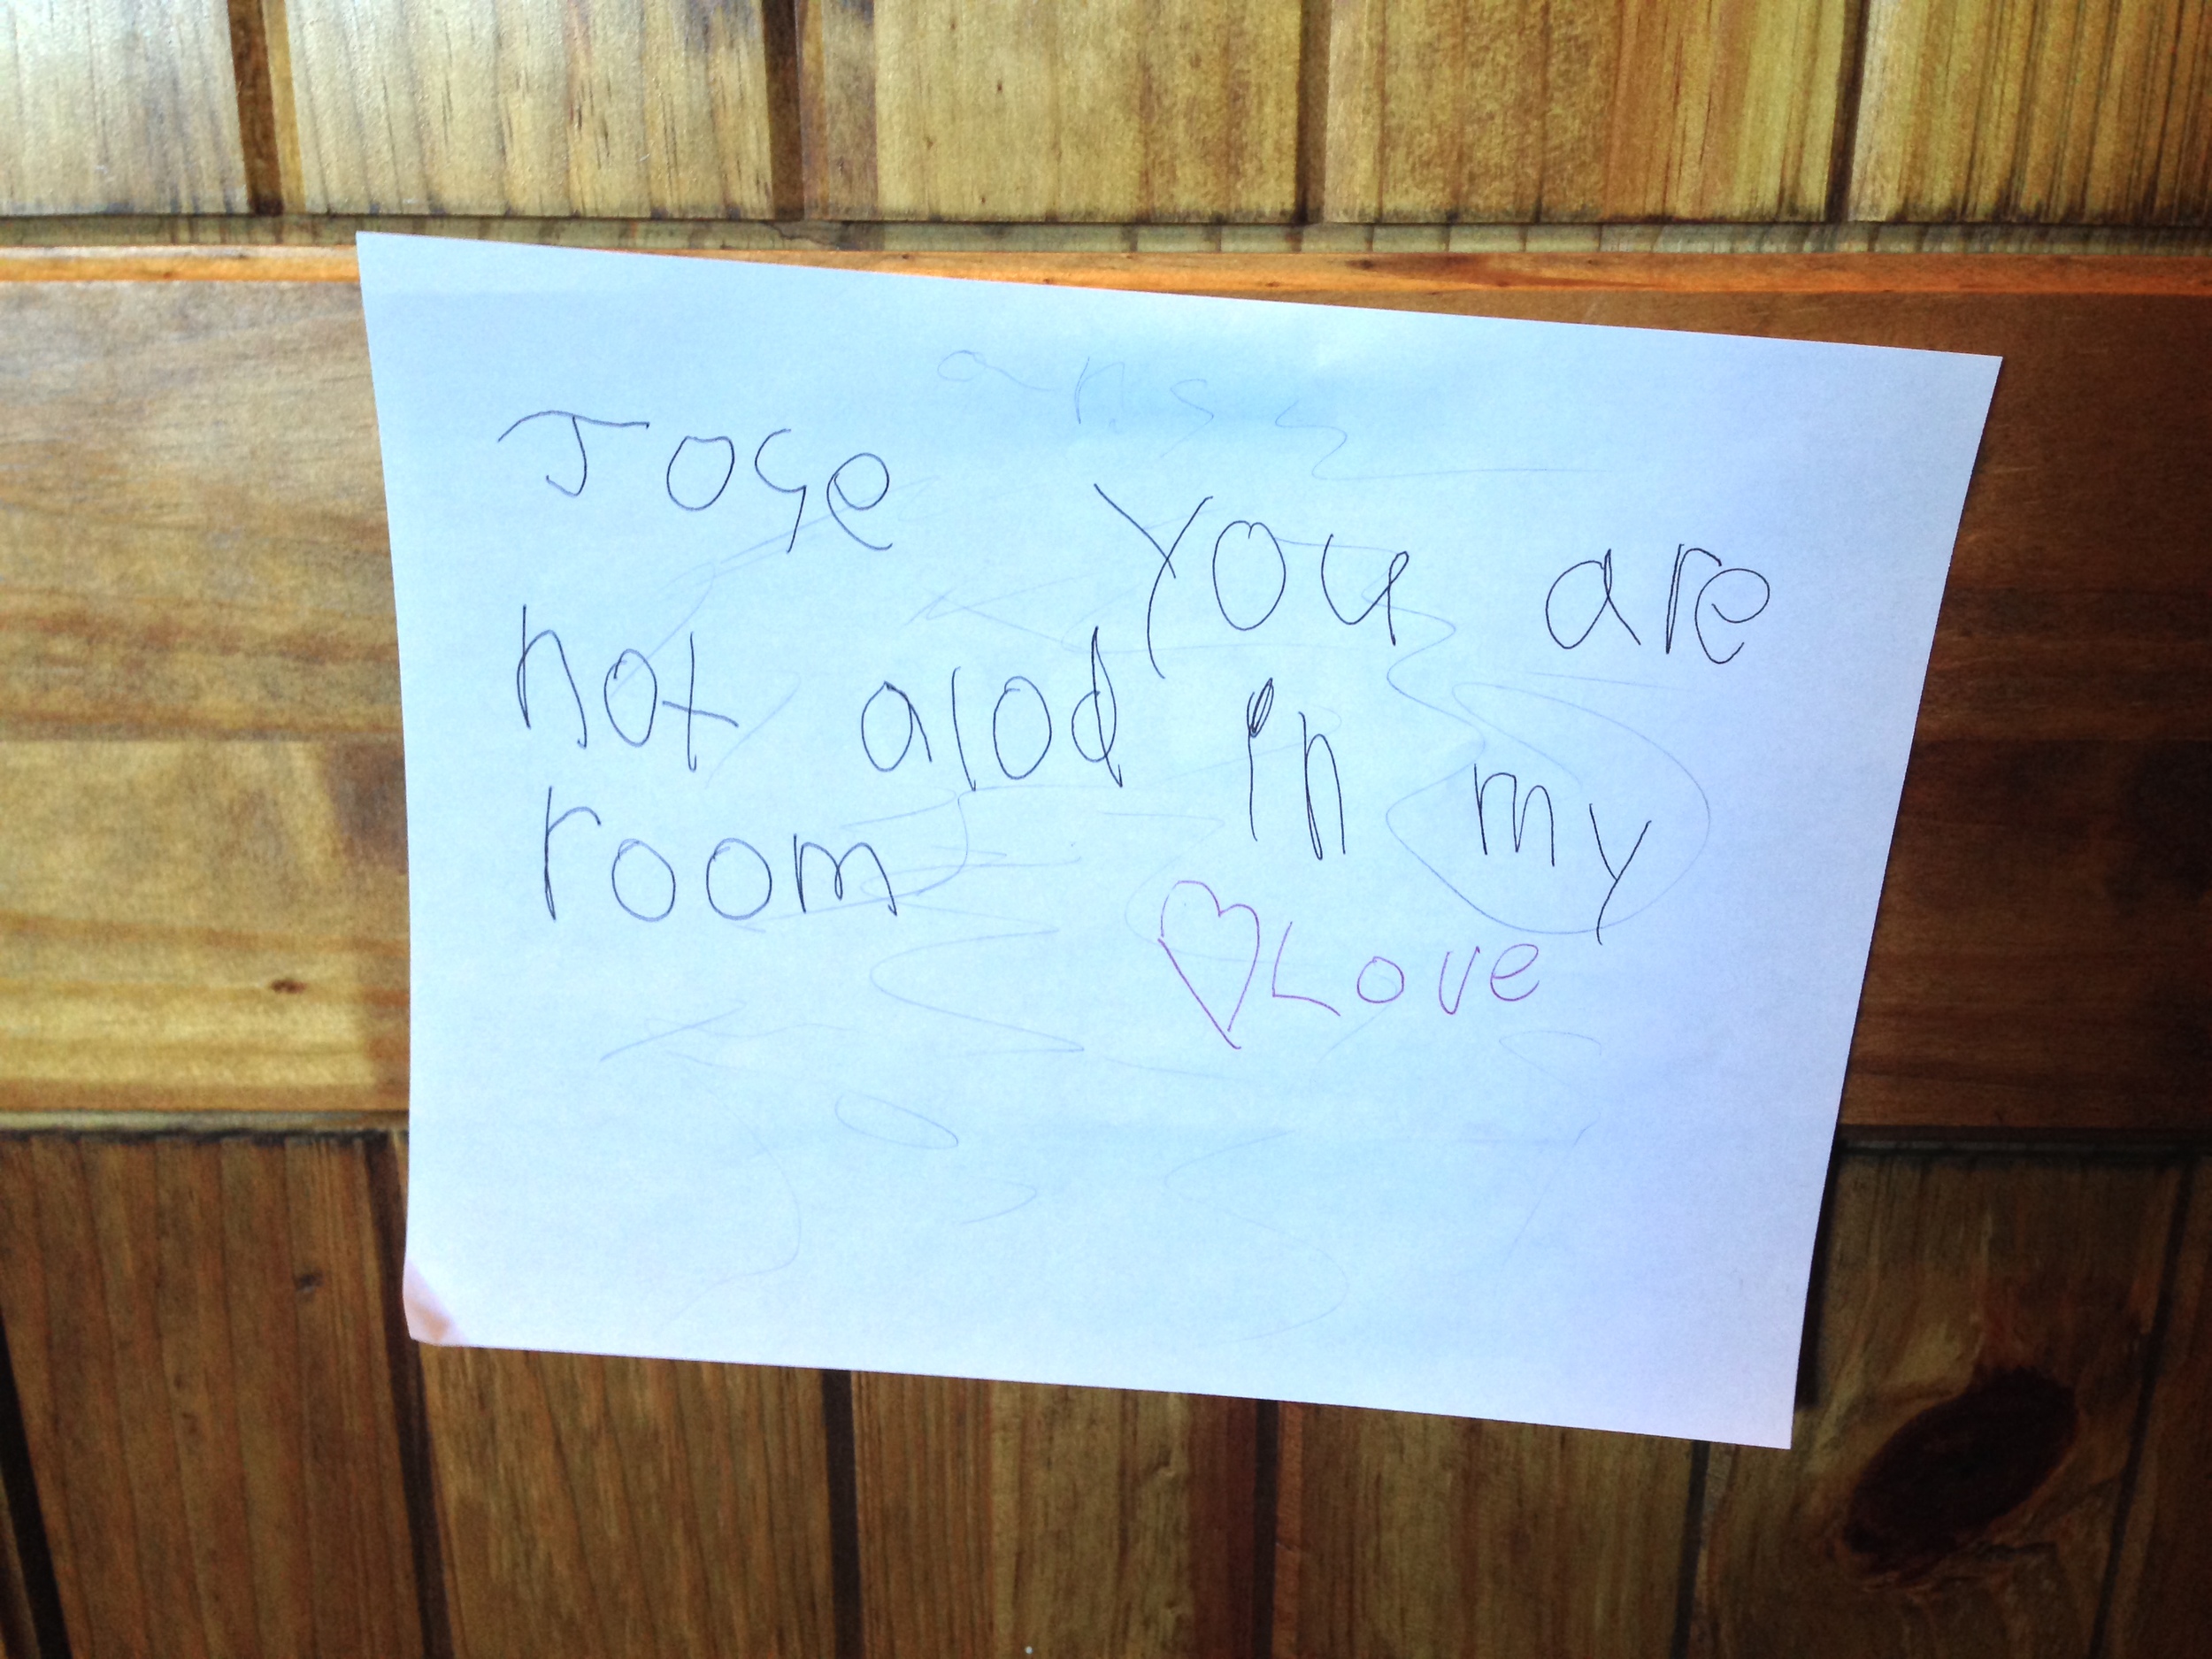 Jose you are
not alod in my
room
♡Love